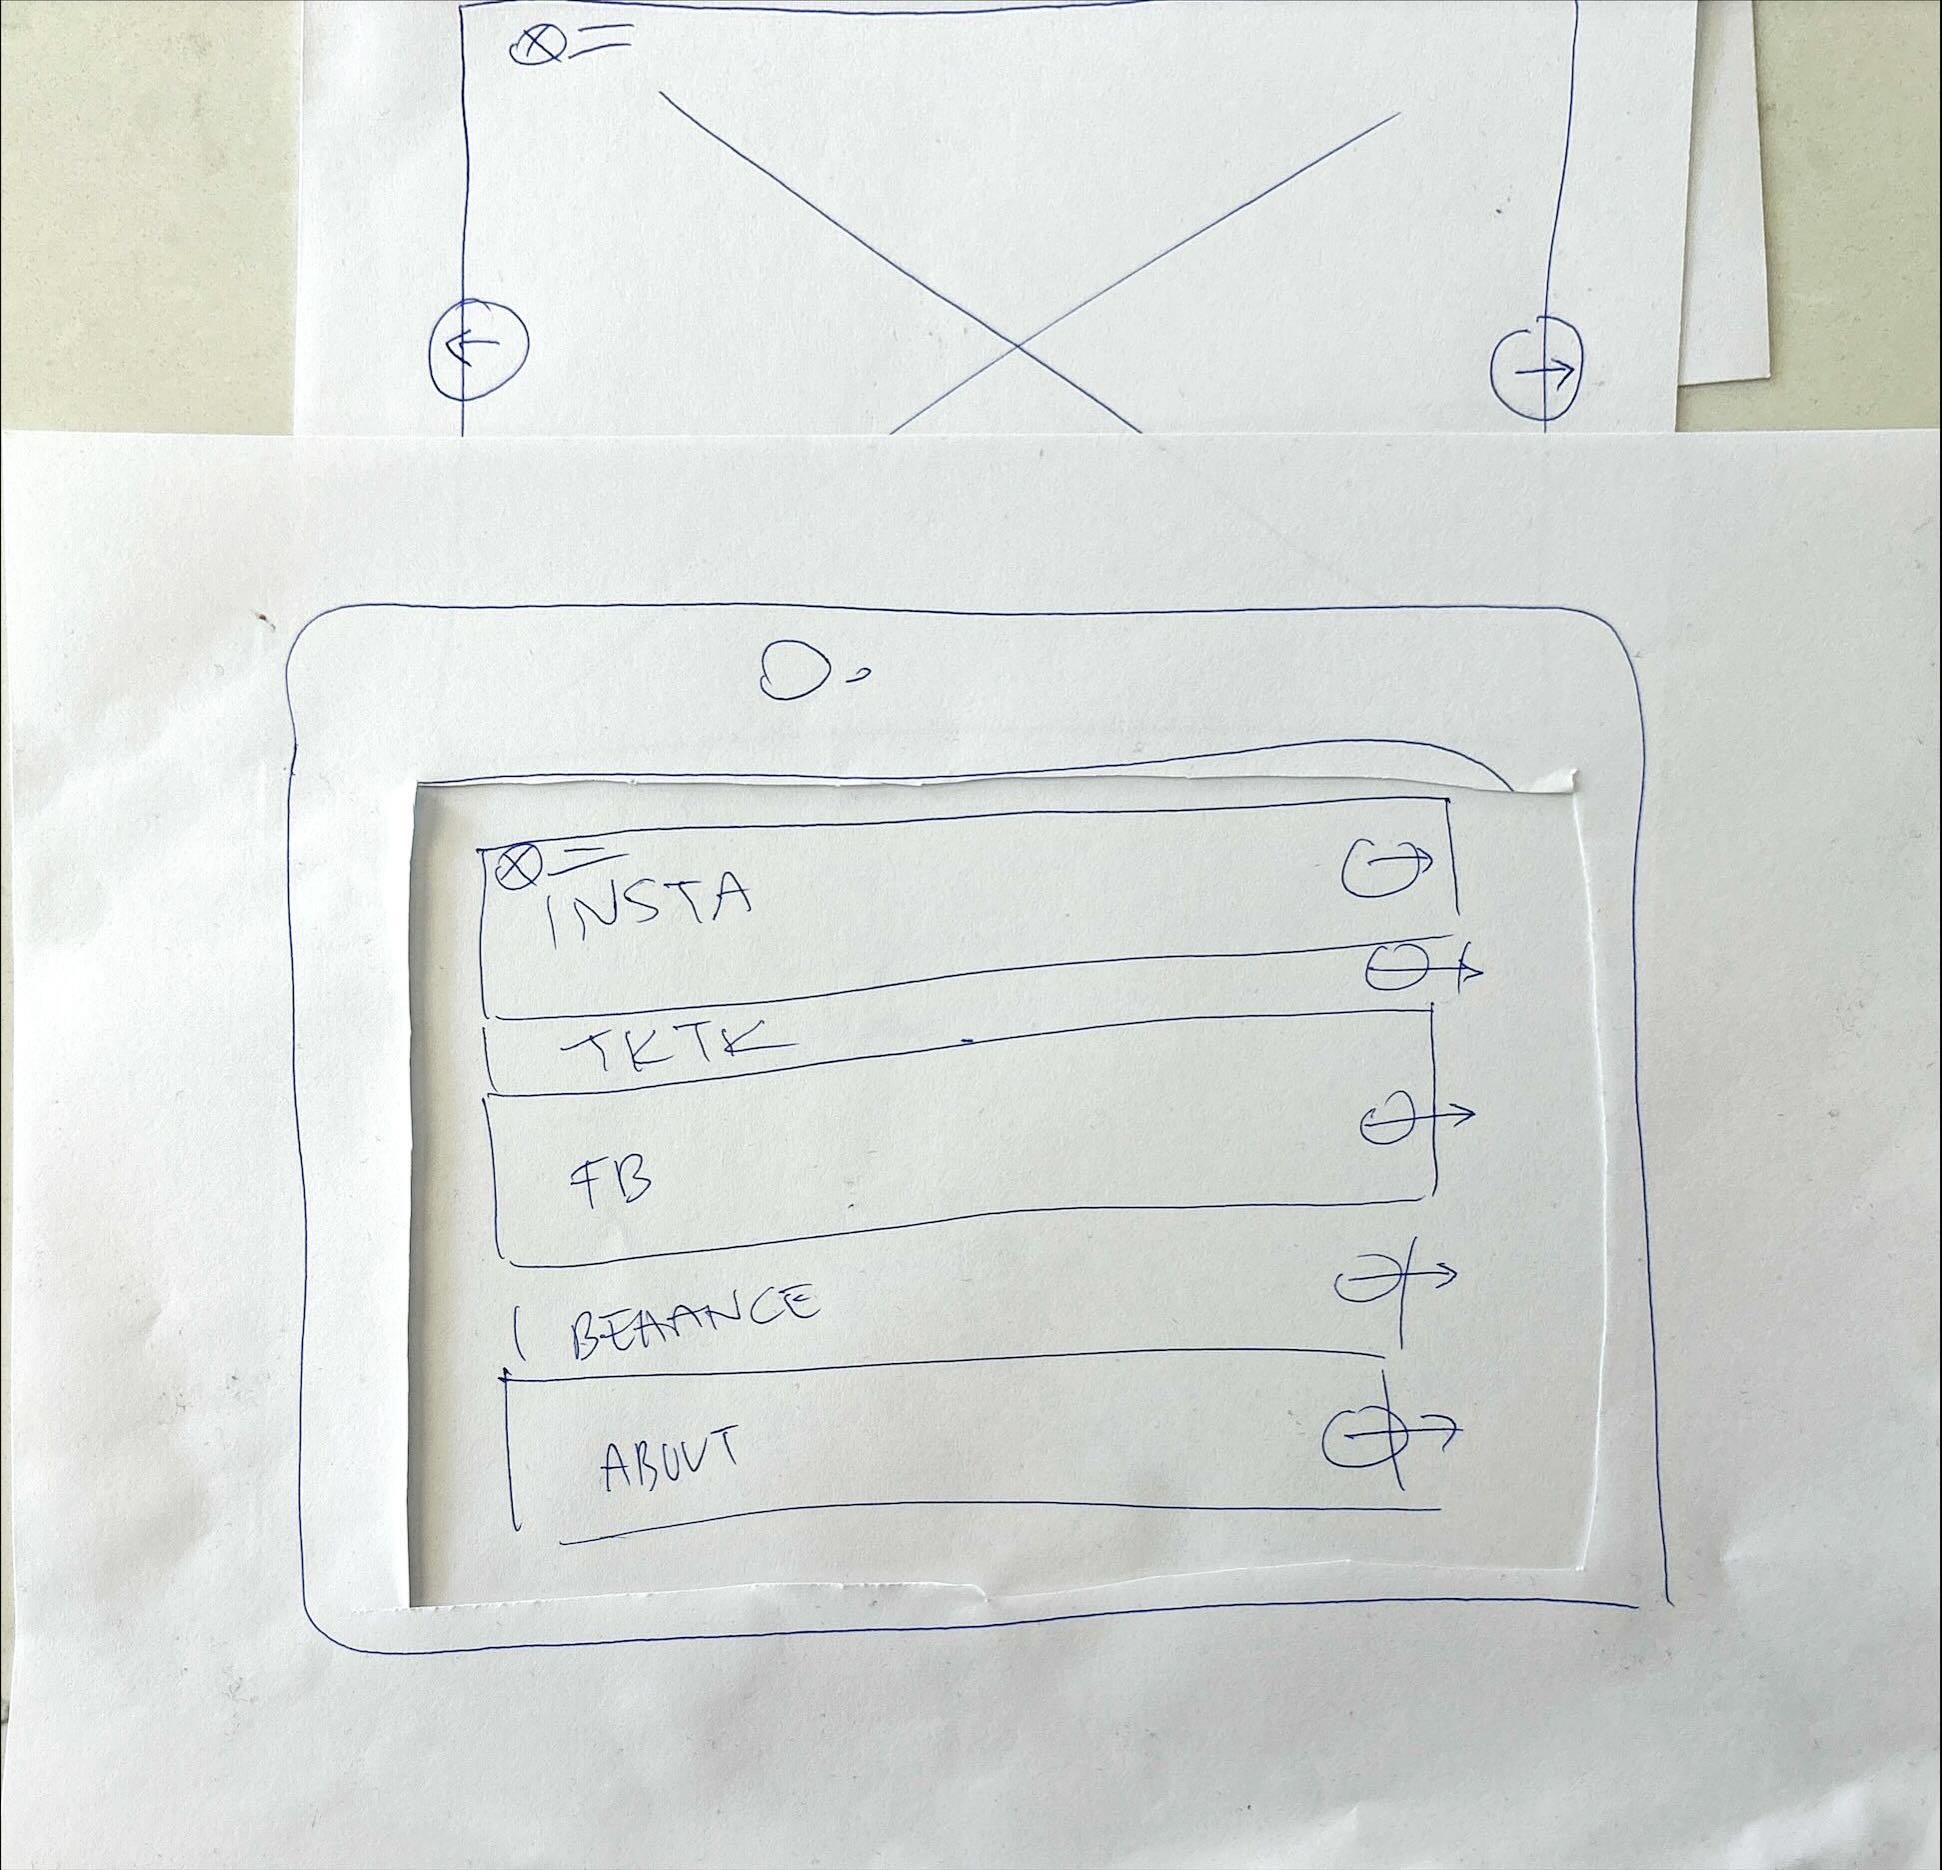 INSTA
TKTK
FB
BEHANCE
ABOUT